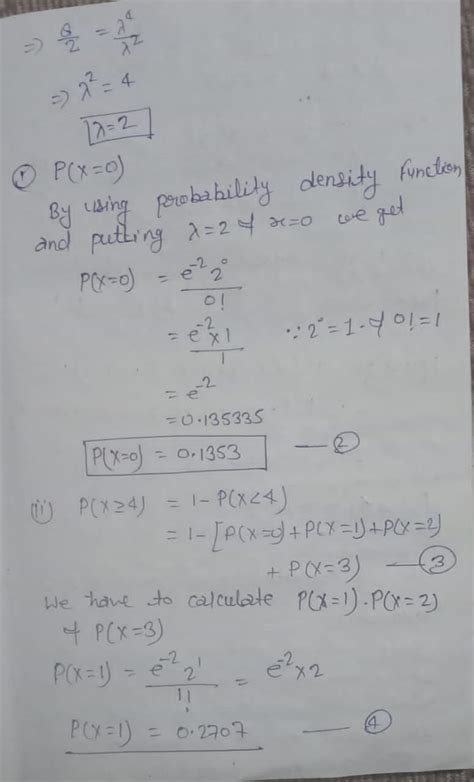 ⇒ 8/2 = λ⁴/λ²
⇒ λ² = 4
λ=2
P(X=0)
By using probability density function
and putting λ=2 & x=0 we get
P(X=0) = e⁻² 2⁰ / 0!
= e⁻² × 1 / 1 ∵ 2⁰ = 1 & 0! = 1
= e⁻²
= 0.135335
P(X=0) = 0.1353 — ②
(ii) P(X≥4) = 1 - P(X<4)
= 1 - [P(X=0) + P(X=1) + P(X=2)
+ P(X=3) — ③
We have to calculate P(X=1). P(X=2)
& P(X=3)
P(X=1) = e⁻² 2¹ / 1! = e⁻² × 2
P(X=1) = 0.2707 — ④